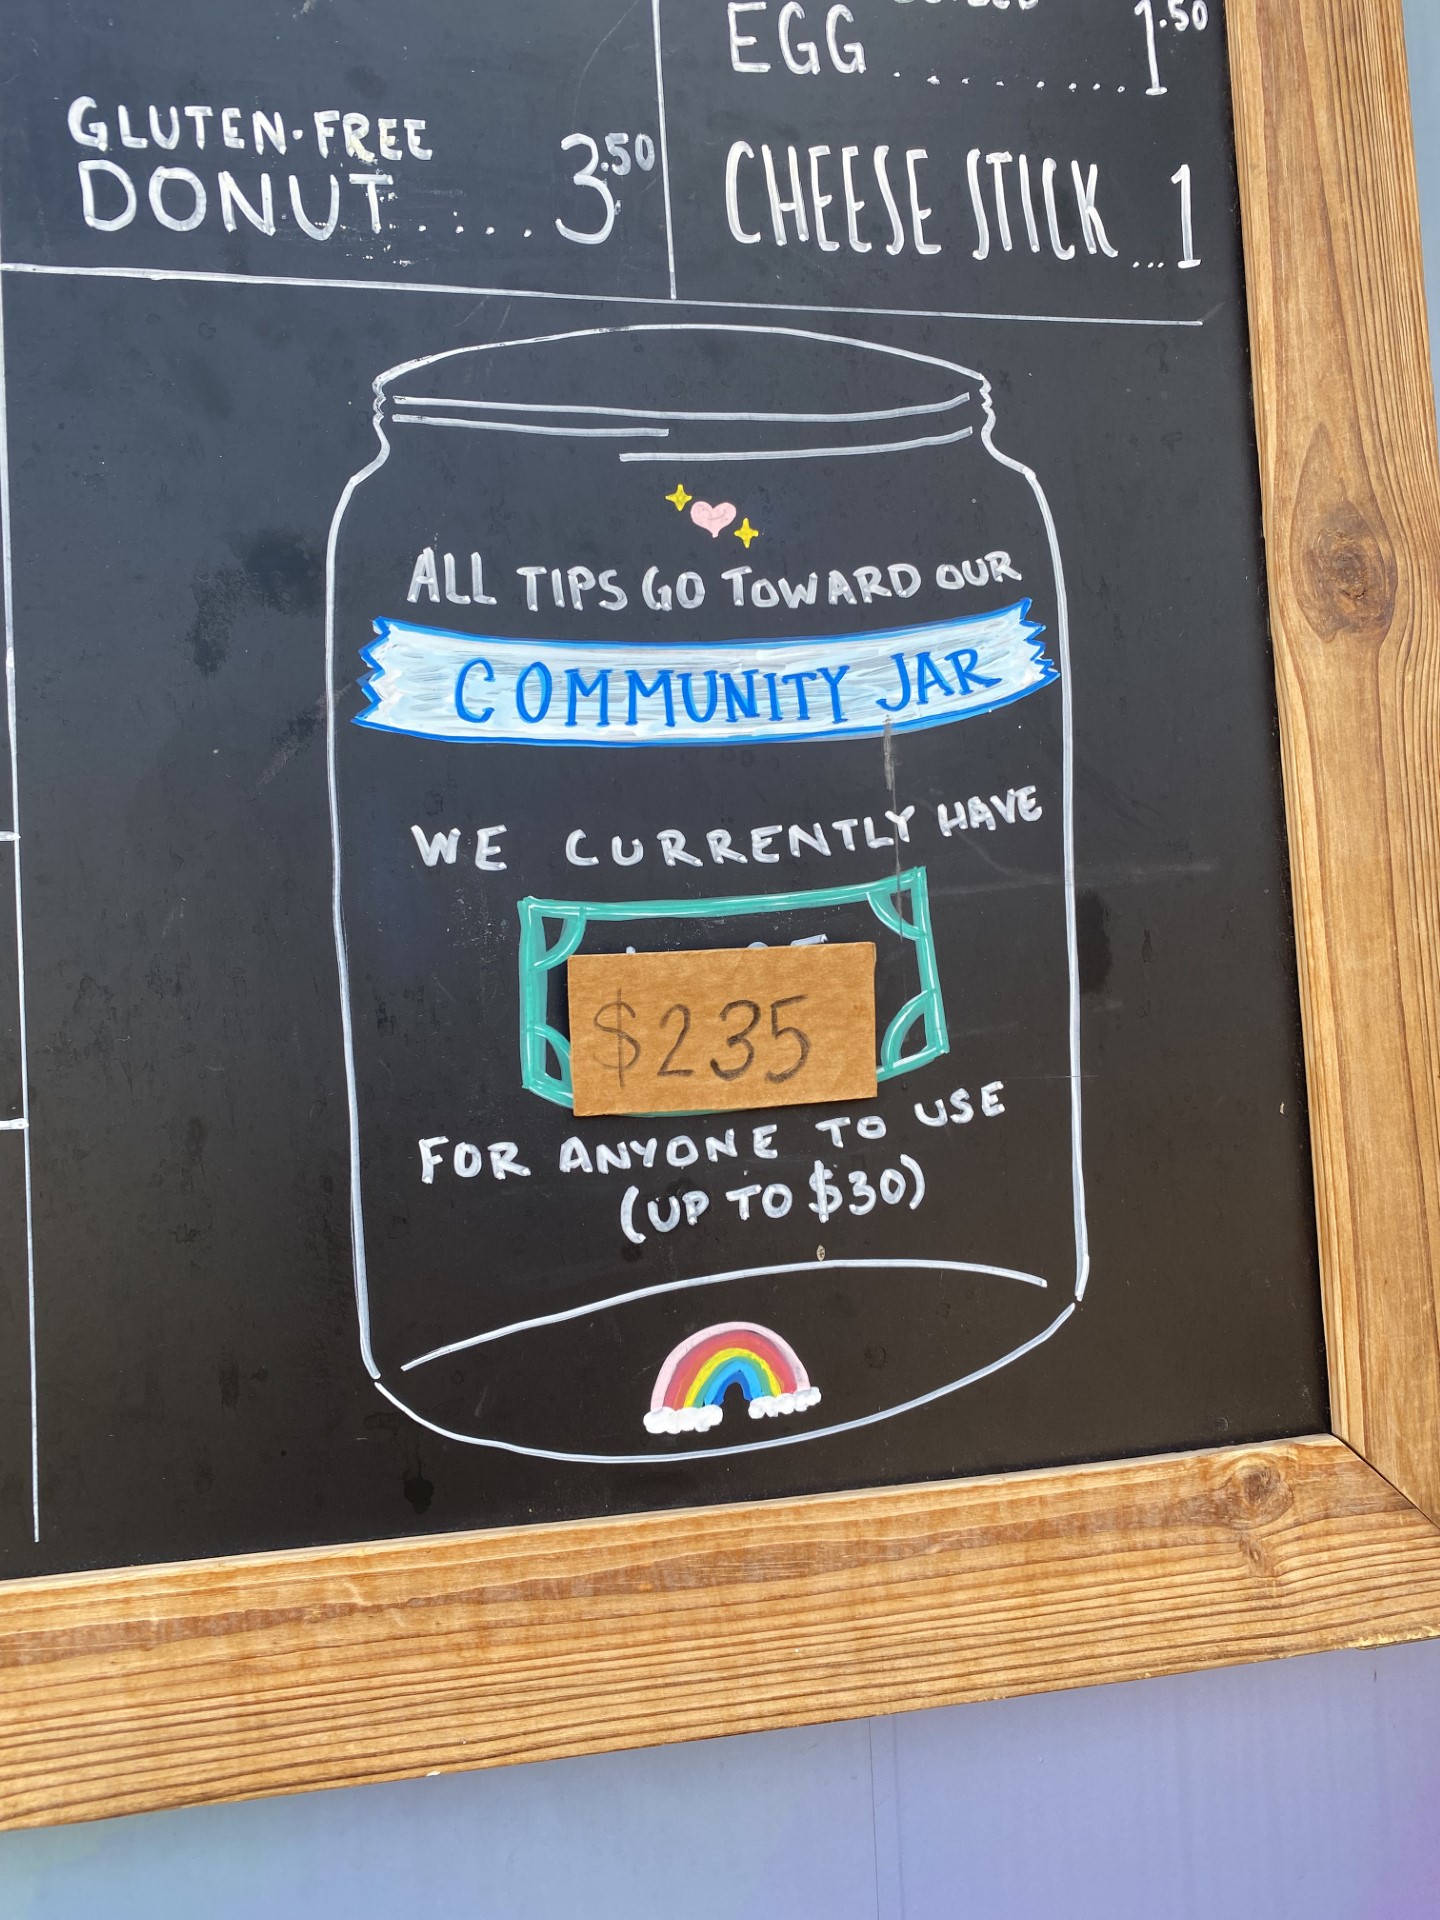 GLUTEN-FREE
DONUT..... 3.50
EGG ......... 1.50
CHEESE STICK ... 1
ALL TIPS GO TOWARD OUR
COMMUNITY JAR
WE CURRENTLY HAVE
$235
FOR ANYONE TO USE
(UP TO $30)